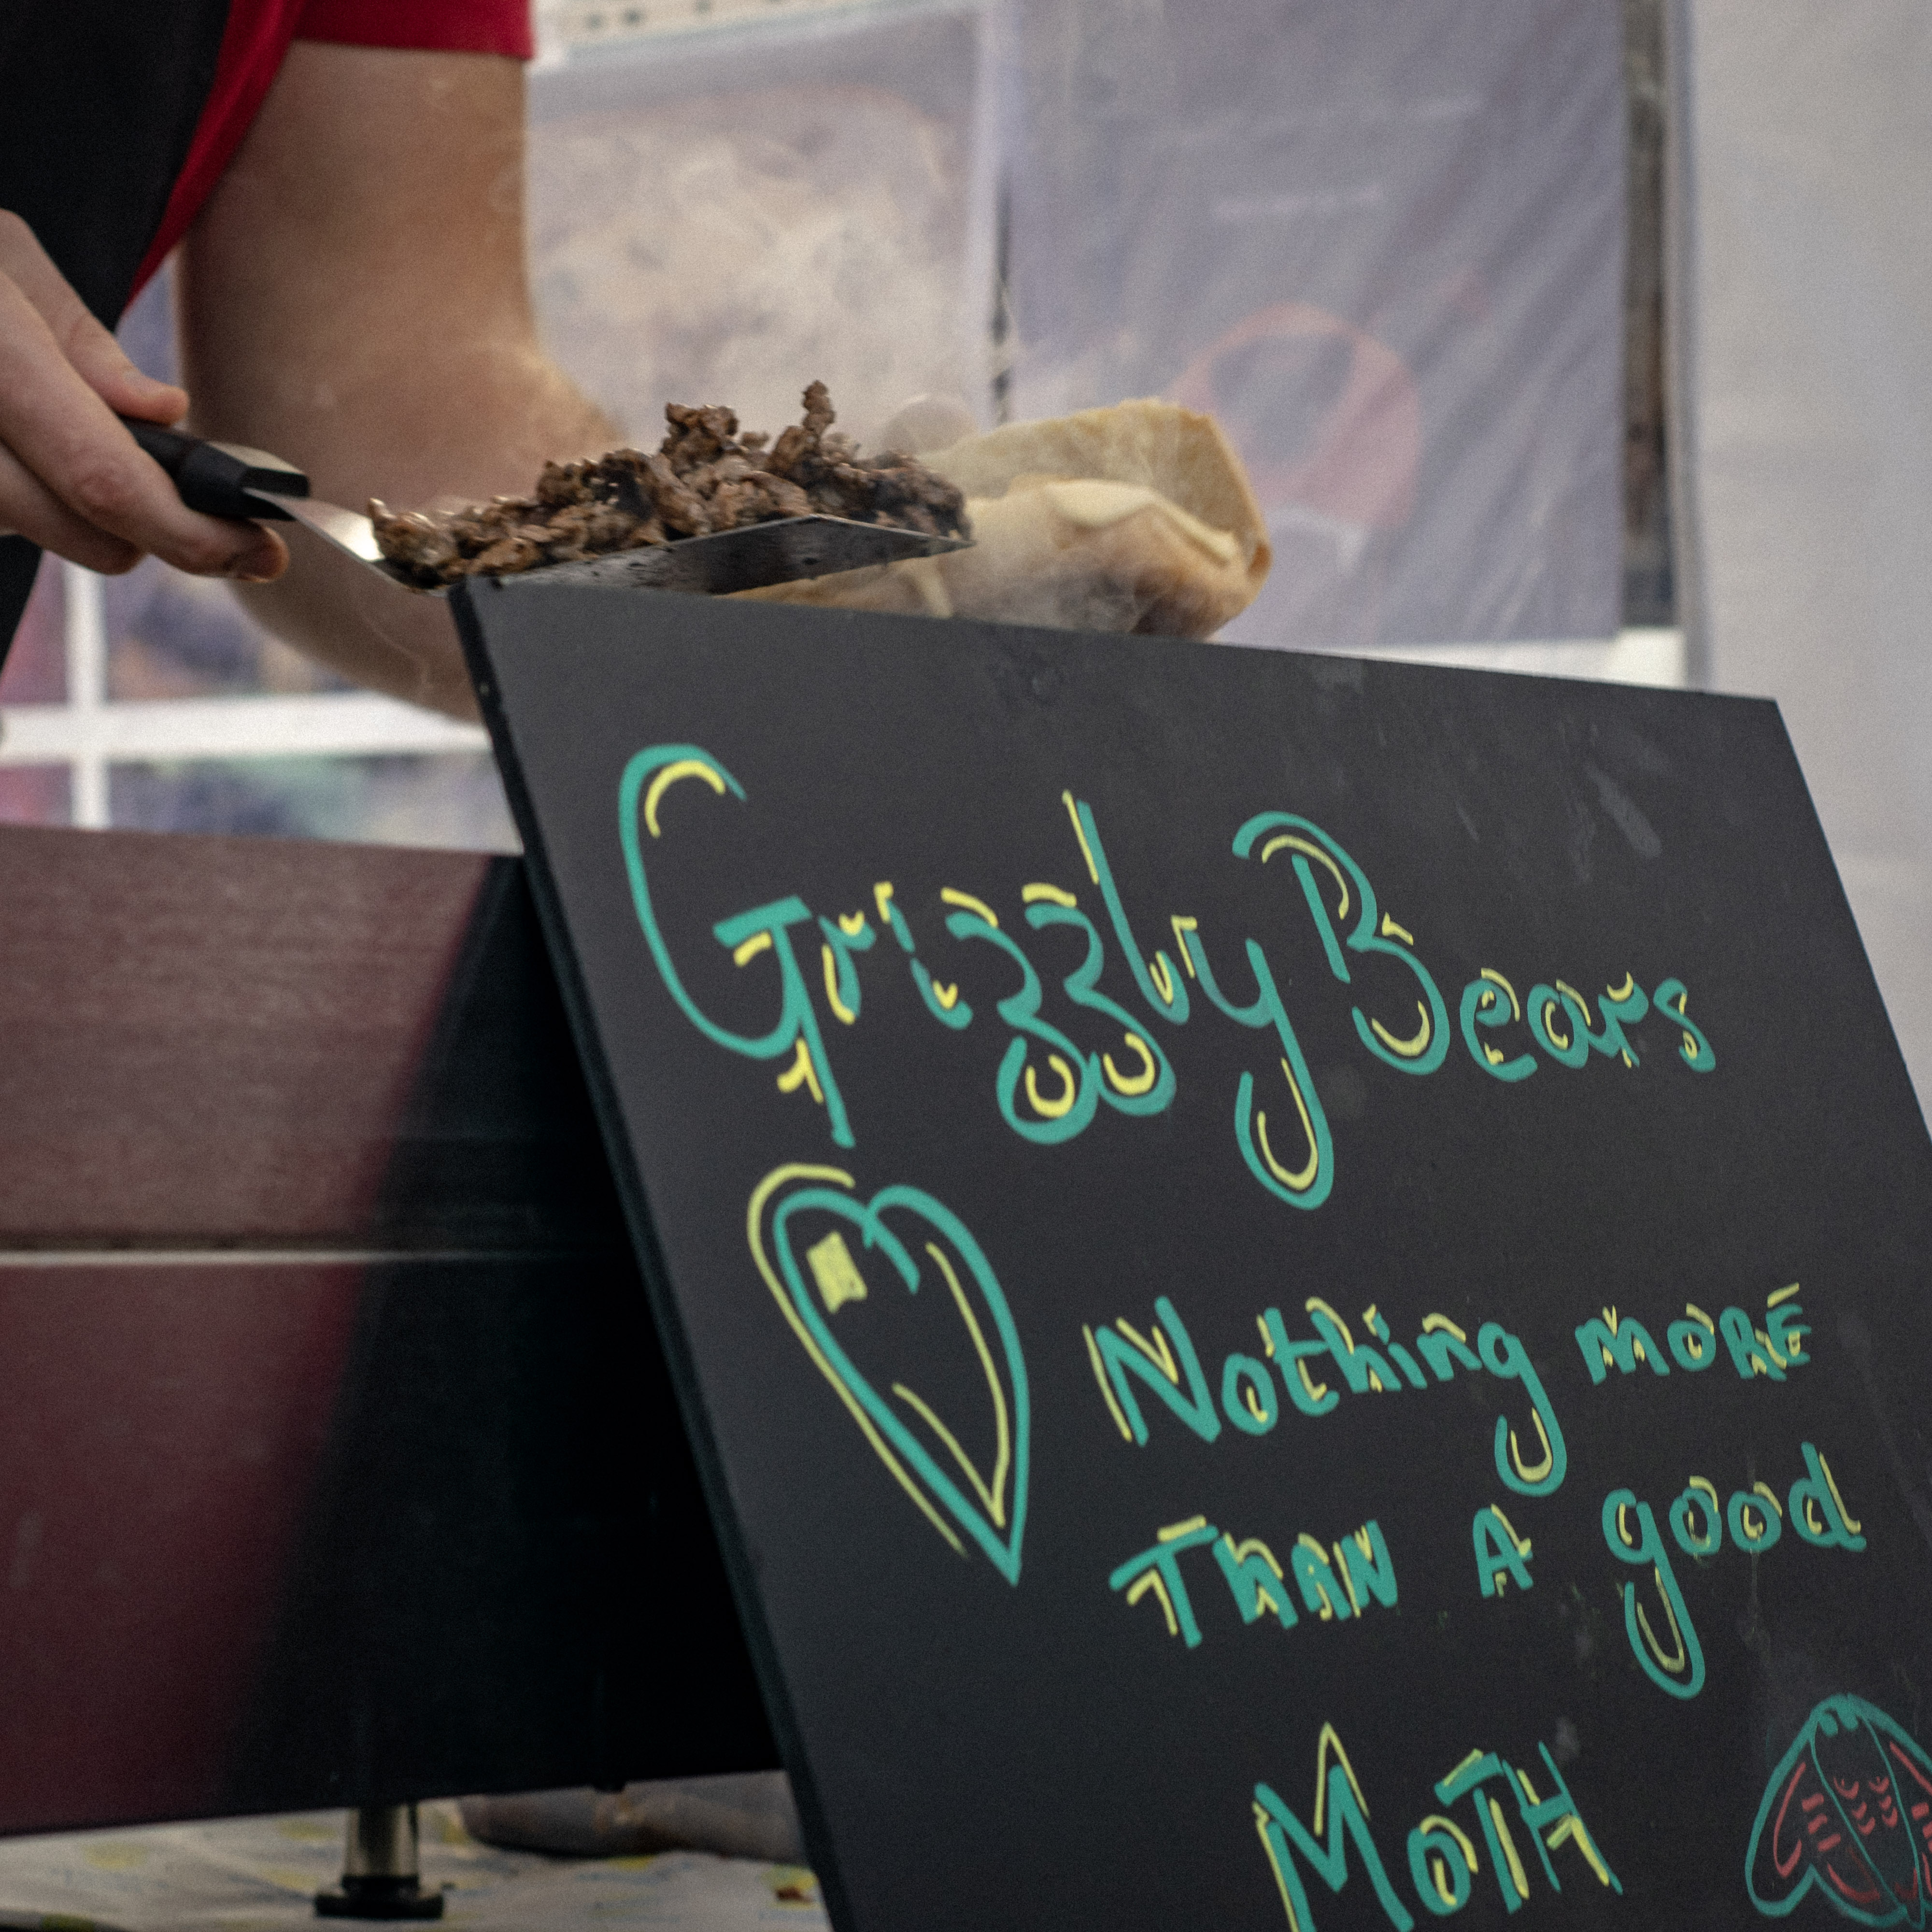 Grizzly Bears
Nothing MORE
THAN A good
MOTH